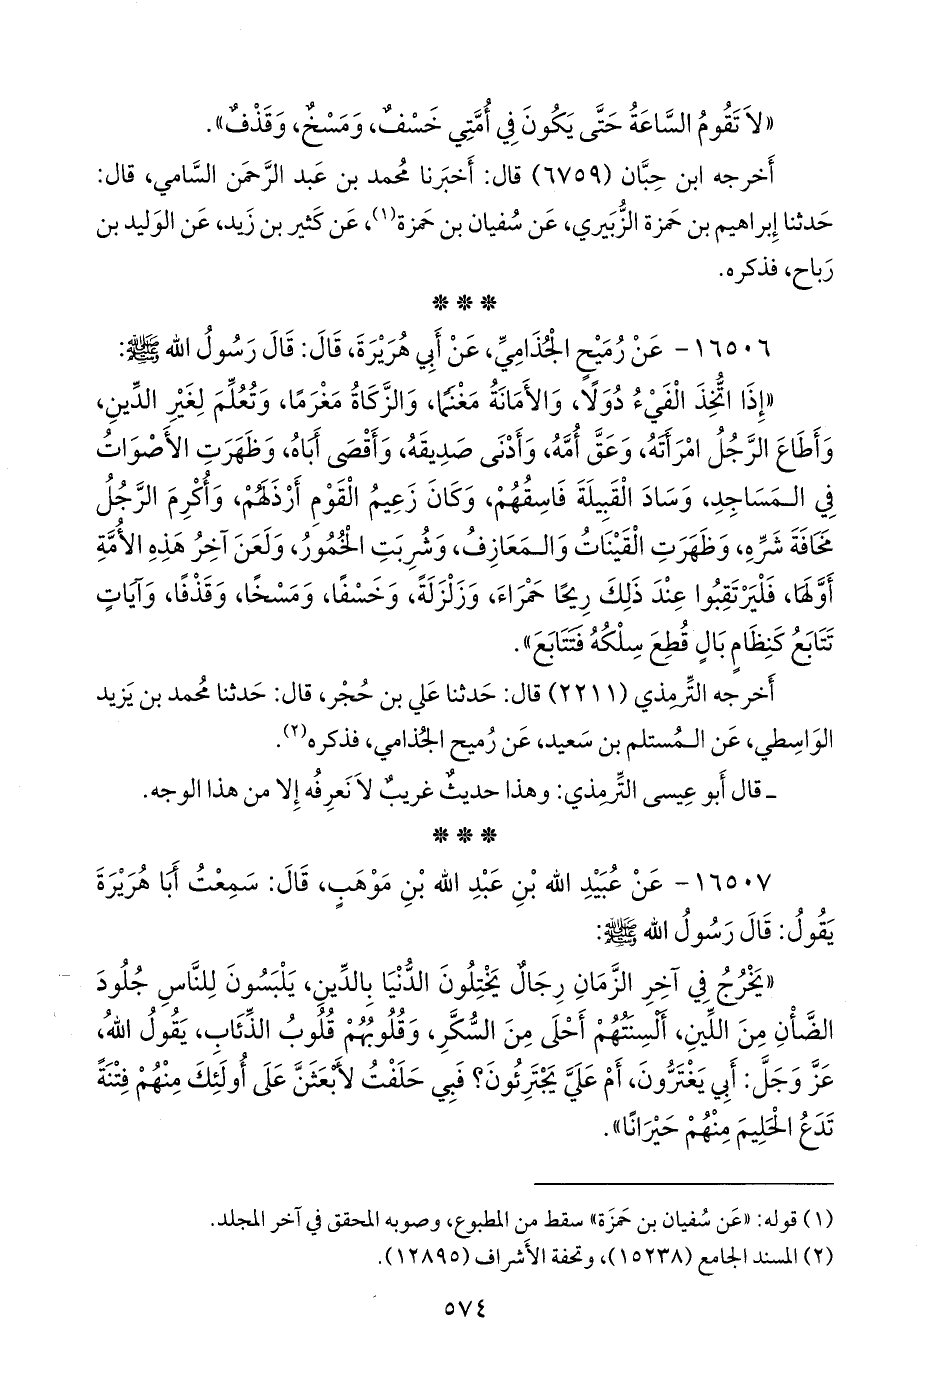 «لاَ تَقُومُ السَّاعَةُ حَتَّى يَكُونَ فِي أُمَّتِي خَسْفٌ، وَمَسْخٌ، وَقَذْفٌ».
أَخرجه ابن حِبَّان (٦٧٥٩) قال: أَخبَرنا مُحمد بن عَبد الرَّحمَن السَّامي، قال:
حَدثنا إِبراهيم بن حَمزة الزُّبَيري، عَن سُفيان بن حَمزة(١)، عَن كَثير بن زَيد، عَن الوَليد بن
رَباح، فذكره.
***
١٦٥٠٦- عَنْ رُمَيْحٍ الْجُذَامِيِّ، عَنْ أَبِي هُرَيْرَةَ، قَالَ: قَالَ رَسُولُ الله ﷺ:
«إِذَا اتُّخِذَ الْفَيْءُ دُوَلًا، وَالأَمَانَةُ مَغْنَمًا، وَالزَّكَاةُ مَغْرَمًا، وَتُعُلِّمَ لِغَيْرِ الدِّينِ،
وَأَطَاعَ الرَّجُلُ امْرَأَتَهُ، وَعَقَّ أُمَّهُ، وَأَدْنَى صَدِيقَهُ، وَأَقْصَى أَبَاهُ، وَظَهَرَتِ الأَصْوَاتُ
فِي الْمَسَاجِدِ، وَسَادَ الْقَبِيلَةَ فَاسِقُهُمْ، وَكَانَ زَعِيمُ الْقَوْمِ أَرْذَلَهُمْ، وَأُكْرِمَ الرَّجُلُ
مَخَافَةَ شَرِّهِ، وَظَهَرَتِ الْقَيْنَاتُ وَالْمَعَازِفُ، وَشُرِبَتِ الْخُمُورُ، وَلَعَنَ آخِرُ هَذِهِ الأُمَّةِ
أَوَّلَهَا، فَلْيَرْتَقِبُوا عِنْدَ ذَلِكَ رِيحًا حَمْرَاءَ، وَزَلْزَلَةً، وَخَسْفًا، وَمَسْخًا، وَقَذْفًا، وَآيَاتٍ
تَتَابَعُ كَنِظَامٍ بَالٍ قُطِعَ سِلْكُهُ فَتَتَابَعَ».
أَخرجه التِّرمِذي (٢٢١١) قال: حَدثنا عَلي بن حُجْر، قال: حَدثنا مُحمد بن يَزيد
الوَاسِطي، عَن الـمُستلم بن سَعيد، عَن رُميح الجُذامي، فذكره(٢).
ـ قال أَبو عِيسى التِّرمِذي: وهذا حديثٌ غريبٌ لاَ نَعرِفُه إِلا من هذا الوجه.
***
١٦٥٠٧- عَنْ عُبَيْدِ الله بْنِ عَبْدِ الله بْنِ مَوْهَبٍ، قَالَ: سَمِعْتُ أَبَا هُرَيْرَةَ
يَقُولُ: قَالَ رَسُولُ الله ﷺ:
«يَخْرُجُ فِي آخِرِ الزَّمَانِ رِجَالٌ يَخْتِلُونَ الدُّنْيَا بِالدِّينِ، يَلْبَسُونَ لِلنَّاسِ جُلُودَ
الضَّأْنِ مِنَ اللِّينِ، أَلْسِنَتُهُمْ أَحْلَى مِنَ السُّكَّرِ، وَقُلُوبُهُمْ قُلُوبُ الذِّئَابِ، يَقُولُ اللهُ،
عَزَّ وَجَلَّ: أَبِي يَغْتَرُّونَ، أَمْ عَلَيَّ يَجْتَرِئُونَ؟ فَبِي حَلَفْتُ لأَبْعَثَنَّ عَلَى أُولَئِكَ مِنْهُمْ فِتْنَةً
تَدَعُ الْحَلِيمَ مِنْهُمْ حَيْرَانًا».
(١) قوله: «عَن سُفيان بن حَمزة» سقط من المطبوع، وصوبه المحقق في آخر المجلد.
(٢) المسند الجامع (١٥٢٣٨)، وتحفة الأشراف (١٢٨٩٥).
٥٧٤